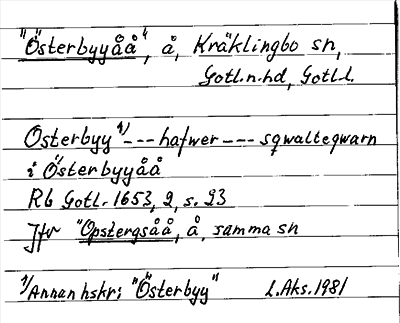 "Österbyyåå", å, Kräklingbo sn,
Gotl.n.hd, Gotl.l.
Osterbyy 1) --- hafwer --- sqwalteqwarn
i Österbyyåå
Rb Gotl. 1653, 2, s. 93
Jfr "Opstergsåå, å, samma sn
1) Annan hskr: "Österbyy" L.Aks. 1981